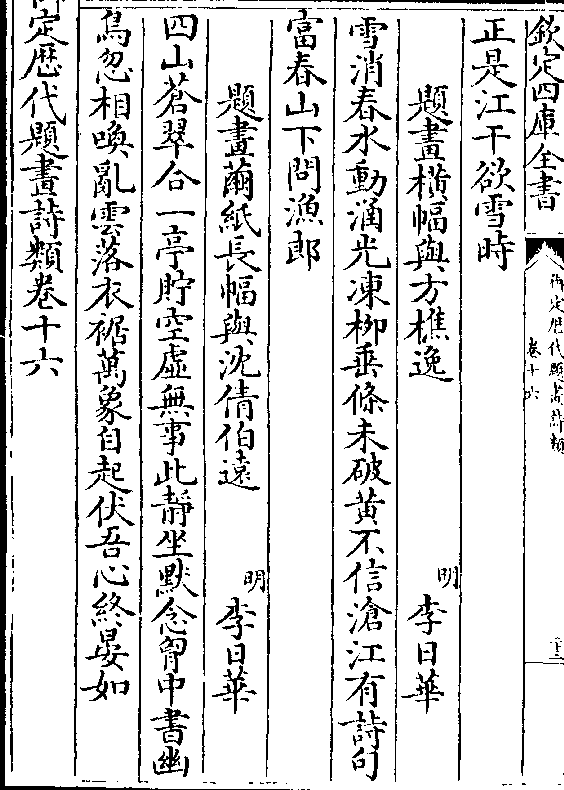 欽定四庫全書
御定歴代題畫詩類
卷十六
正是江干欲雪時
題畫横幅與方樵逸
明
李日華
雪消春水動瀰光凍柳垂條未破黄不信滄江有詩句
富春山下問漁郎
題畫繭紙長幅與沈倩伯遠
明
李日華
四山蒼翠合一亭貯空虛無事此靜坐默念胷中書幽
鳥忽相喚亂雲落衣裾萬象自起伏吾心終晏如
御定歴代題畫詩類卷十六